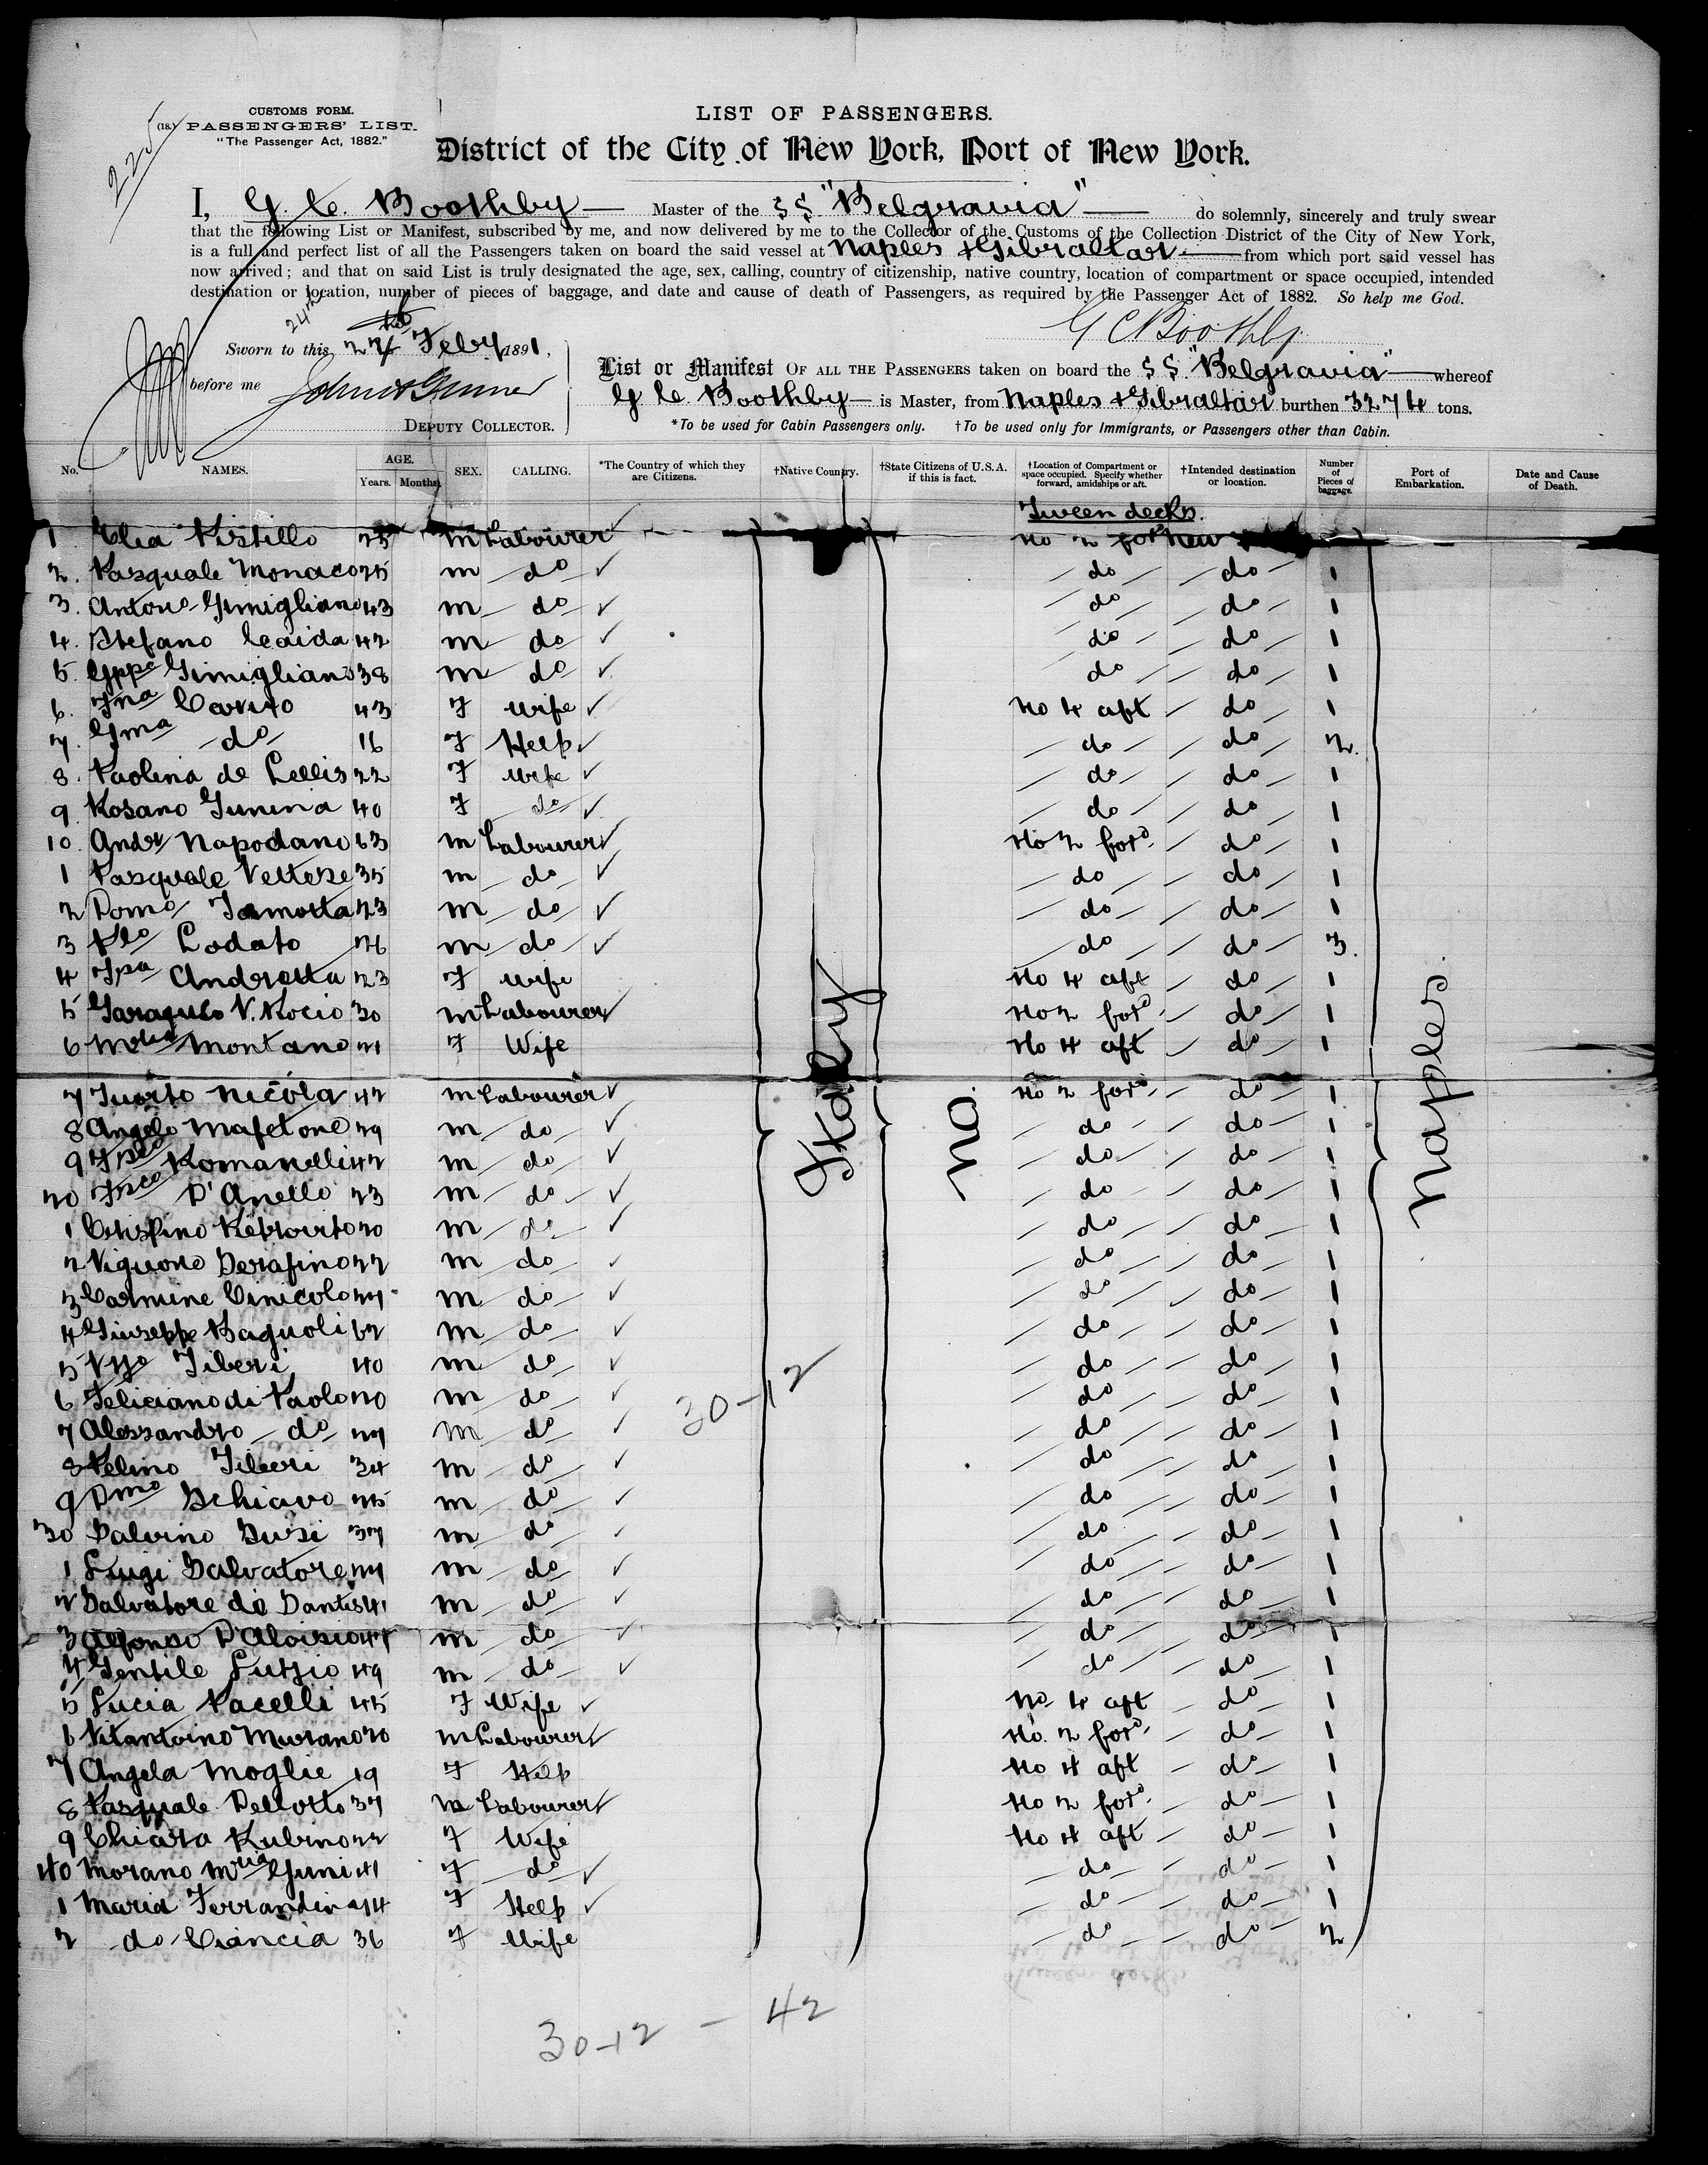 225
CUSTOMS FORM.
(18.) PASSENGERS' LIST.
"The Passenger Act, 1882."
LIST OF PASSENGERS.
District of the City of New York, Port of New York.
I, G. C. Boothby — Master of the SS "Belgravia" — do solemnly, sincerely and truly swear
that the following List or Manifest, subscribed by me, and now delivered by me to the Collector of the Customs of the Collection District of the City of New York,
is a full and perfect list of all the Passengers taken on board the said vessel at Naples & Gibraltar — from which port said vessel has
now arrived; and that on said List is truly designated the age, sex, calling, country of citizenship, native country, location of compartment or space occupied, intended
destination or location, number of pieces of baggage, and date and cause of death of Passengers, as required by the Passenger Act of 1882. So help me God.
G C Boothby
Sworn to this Feby 1891,
before me
DEPUTY COLLECTOR.
List or Manifest OF ALL THE PASSENGERS taken on board the SS "Belgravia" — whereof
G. C. Boothby — is Master, from Naples & Gibraltar burthen 3274 tons.
*To be used for Cabin Passengers only. †To be used only for Immigrants, or Passengers other than Cabin.
No. NAMES. AGE. Years. Months. SEX. CALLING. *The Country of which they are Citizens. †Native Country. †State Citizens of U.S.A. if this is fact. †Location of Compartment or space occupied. Specify whether forward, amidships or aft. †Intended destination or location. Number of Pieces of baggage. Port of Embarkation. Date and Cause of Death.
Tween decks.
1 Elia Pistillo 25 m Labourer No 2 for^d New
2. Pasquale Monaco 25 m do do do 1
3. Anton^o Gimigliano 43 m do do do 1
4. Stefano Caida 42 m do do do 1
5. Gppe Gimigliano 38 m do do do 1
6. Caruso 43 F Wife No 4 aft do 1
7. do 16 F Help do do 2.
8. Paolina de Lellis 22 F Wife do do 1
9. Rosano Gunina 40 F do do do 1
10. Andr Napodano 63 m Labourer No 2 for^d do 1
1 Pasquale Vettese 35 m do do do 1
2 Dom^o Iamotta 23 m do do do 1
3 Lodato 26 m do do do 3.
4 Andretta 23 F Wife No 4 aft do 1
5 V. Rocio 30 m Labourer No 2 for^d do 1
6 M^ria Montano 21 F Wife No 4 aft do 1
7 Nicola 42 m Labourer No 2 for^d do 1
8 Angelo Mafetone 29 m do do do 1
9 Romanelli 42 m do do do 1
20 Fsco D'Anello 23 m do do do 1
1 Crispino 20 m do do do 1
2 Viguono Serafino 22 m do do do 1
3 Carmine Cinicolo 27 m do do do 1
4 Giuseppe Bagnoli 62 m do do do 1
5 Tiberi 40 m do do do 1
6 Feliciano di Paolo 20 m do do do 1
7 Alessandro do 27 m do do do 1
8 Pelino Tiberi 34 m do do do 1
9 Schiavo 25 m do do do 1
30 Salvino Susi 37 m do do do 1
1 Luigi Salvatore 27 m do do do 1
2 Salvatore de Santis 41 m do do do 1
3 Alfonso D'Aloisio m do do do 1
4 Gentile Lutzio 49 m do do do 1
5 Lucia Pacelli 45 F Wife No. 4 aft do 1
6 Vitantoino Murano 20 m Labourer No. 2 for^d do 1
7 Angela Moglie 19 F Help No 4 aft do 1
8 Pasquale Dellotto 37 m Labourer No 2 for^d do 1
9 Chiara Rubino 22 F Wife No 4 aft do 1
40 Morano M^ria Giuni 41 F do do do 1
1 Maria Ferrandina 14 F Help do do 1
2 do Ciancia 36 F Wife do do 2
Italy
no.
Naples.
30-12
30-12 - 42